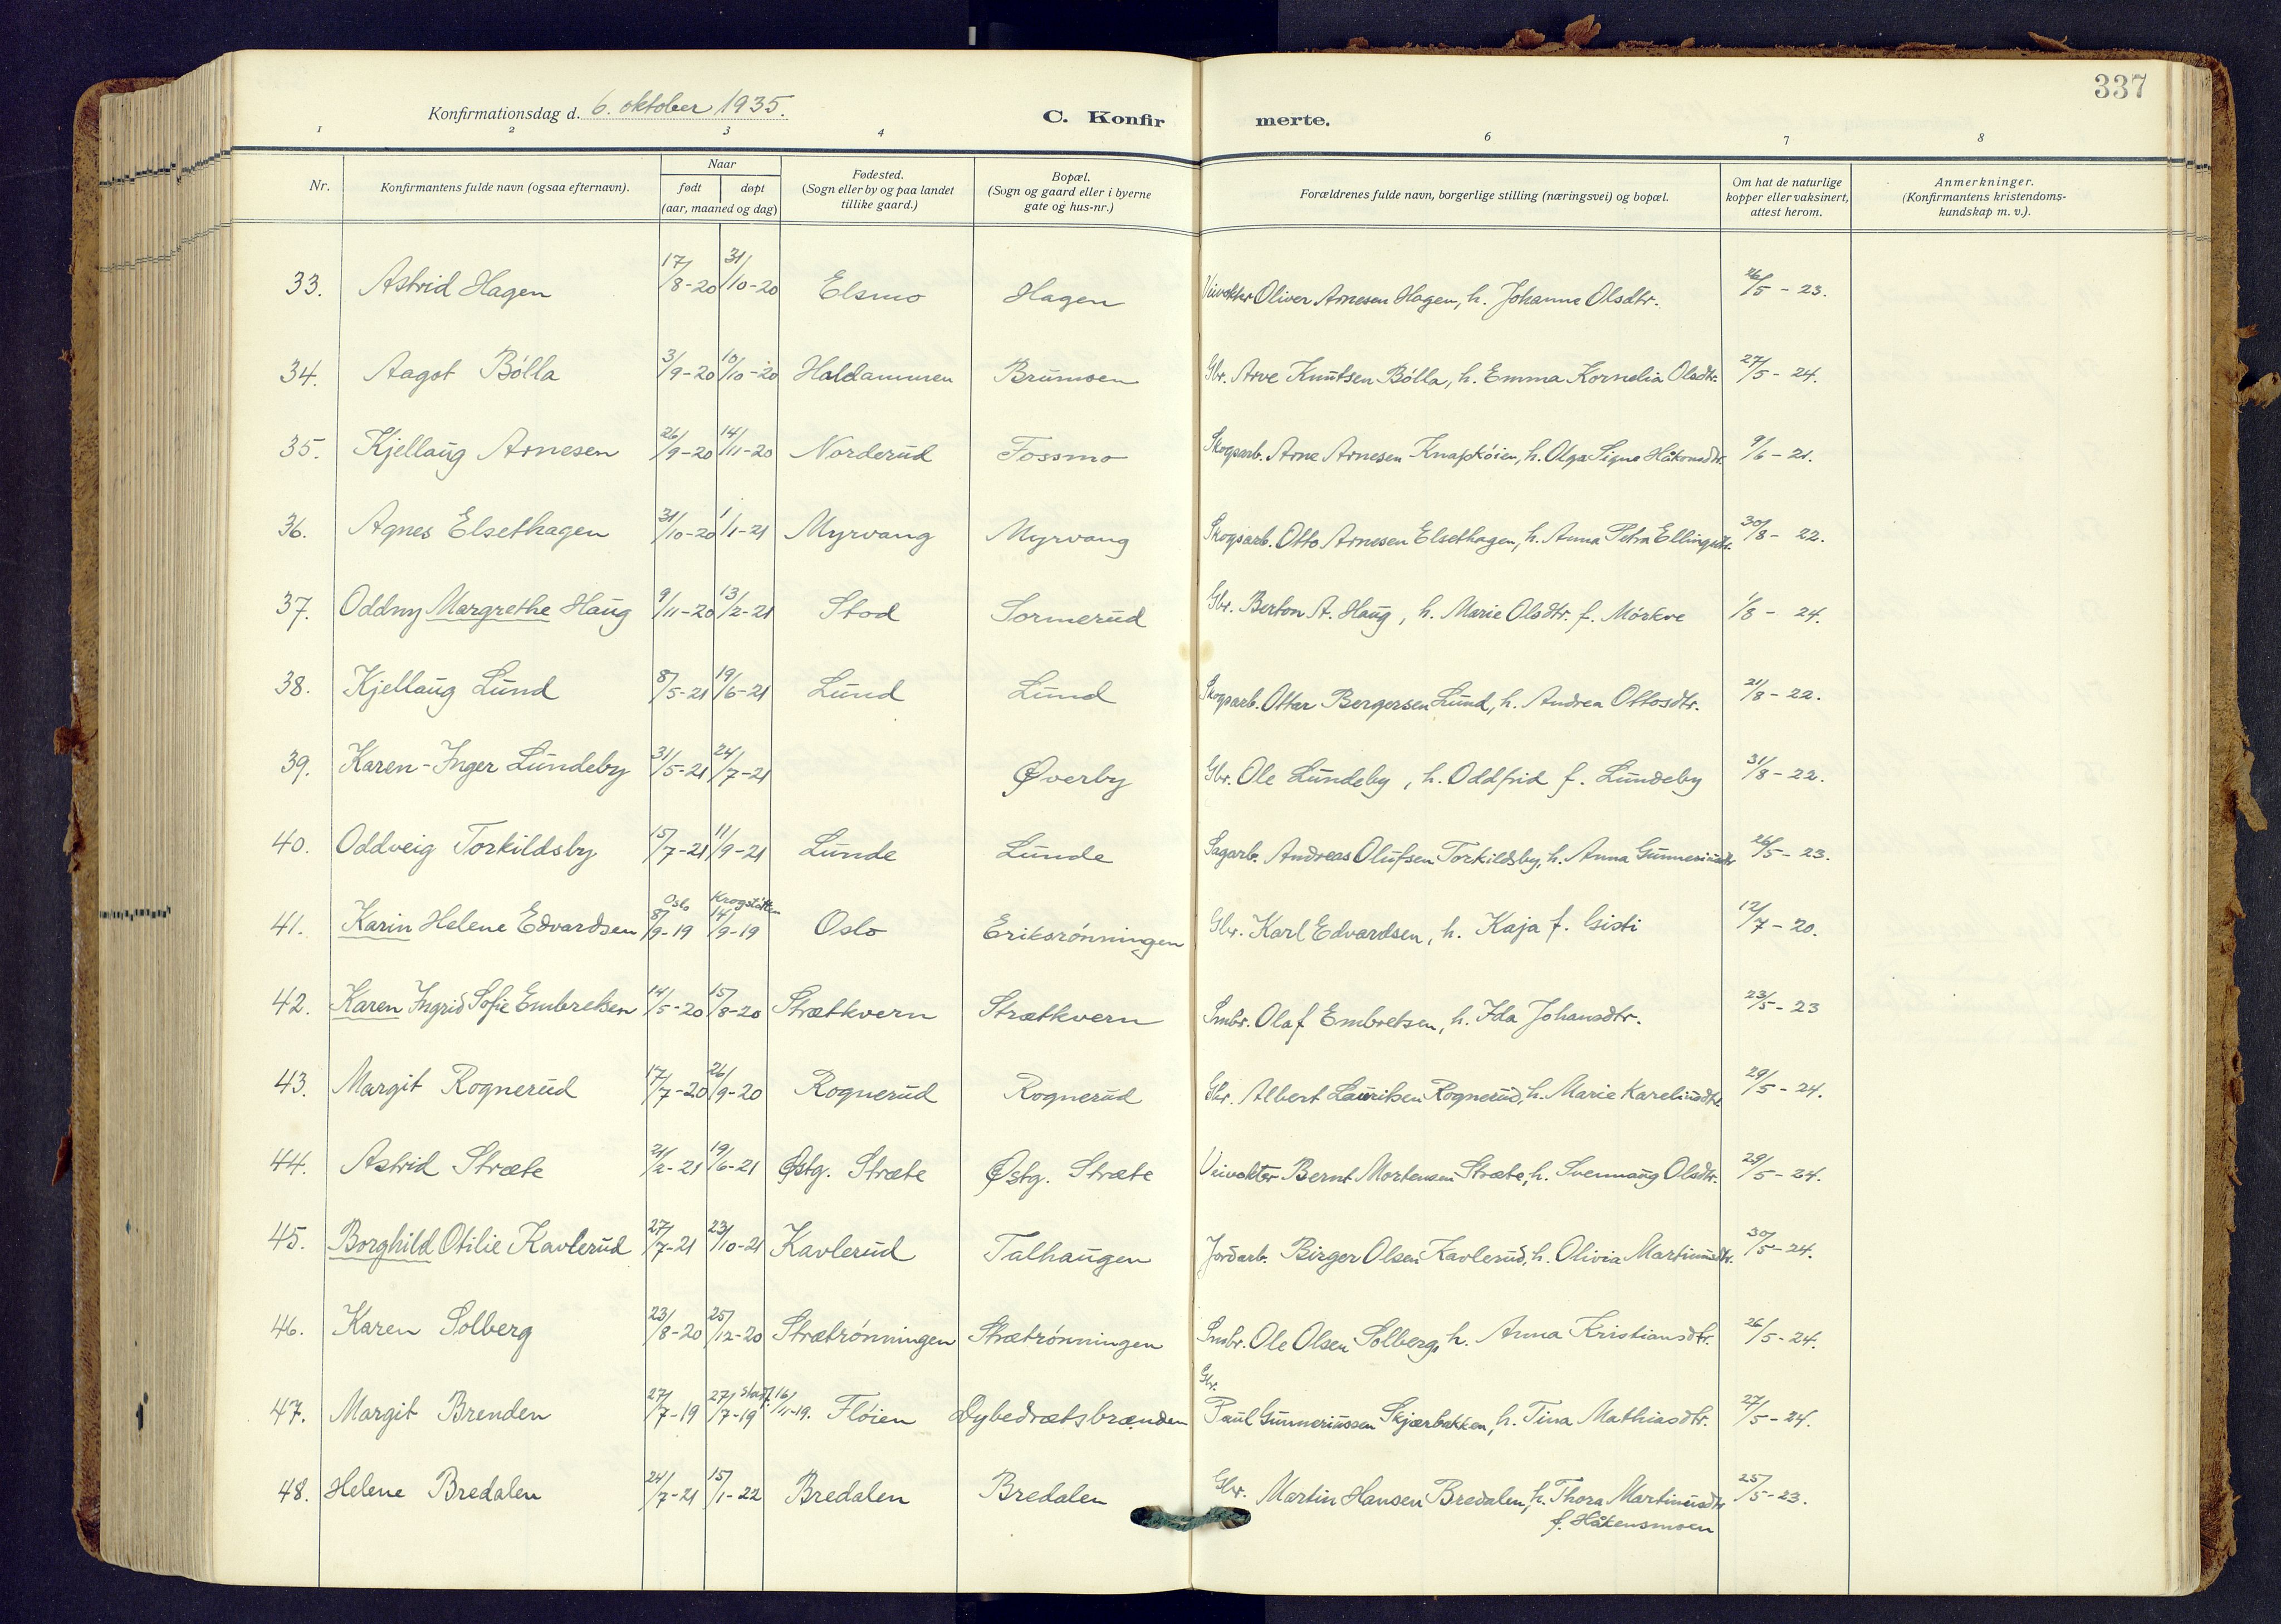 337
Konfirmationsdag d. 6. oktober 1935.
C. Konfir merte.
1 2 3 4 6 7 8
Nr. Konfirmantens fulde navn (ogsaa efternavn). Naar født døpt (aar, maaned og dag) Fødested. (Sogn eller by og paa landet tillike gaard.) Bopæl. (Sogn og gaard eller i byerne gate og hus-nr.) Forældrenes fulde navn, borgerlige stilling (næringsvei) og bopæl. Om hat de naturlige kopper eller vaksinert, attest herom. Anmerkninger. (Konfirmantens kristendoms-kundskap m. v.).
33. Astrid Hagen 17/8-20 31/10-20 Elsmo Hagen Veivokter Oliver Arnesen Hagen, h. Johanne Olsdtr. 26/5-23.
34. Aagot Bólla 3/9-20 10/10-20 Holdammen Brumoen Gbr. Arve Knutsen Bólla, h. Emma Kornelia Olsdtr. 27/5-24.
35. Kjellaug Arnesen 26/9-20 14/11-20 Norderud Fossmo Skogsarb. Arne Arnesen Knapkóien, h. Olga Signe Håkonsdtr. 9/6-21.
36. Agnes Elsethagen 31/10-20 1/1-21 Myrvang Myrvang Skogsarb. Otto Arnesen Elsethagen, h. Anna Petra Ellingsdtr. 30/8-22.
37. Oddny Margrethe Haug 9/11-20 13/2-21 Stod Sormerud Gbr. Berton A. Haug, h. Marie Olsdtr. f. Mórkve 1/8-24.
38. Kjellaug Lund 8/5-21 19/6-21 Lund Lund Skogsarb. Ottar Bergersen Lund, h. Andrea Ottosdtr. 21/8-22.
39. Karen-Inger Lundeby 31/5-21 24/7-21 Øverby Gbr. Ole Lundeby, h. Oddfrid f. Lundeby 31/8-22.
40. Oddveig Torkildsby 15/7-21 11/9-21 Lunde Lunde Sagarb. Andreas Olufsen Torkildsby, h. Anna Gunneriusdtr 26/5-23.
41. Karin Helene Edvardsen Oslo 8/9-19 14/9-19 Oslo Eriksrónningen Gbr. Karl Edvardsen, h. Kaja f. Gisti 12/7-20.
42. Karen Ingrid Sofie Embretsen 14/5-20 15/8-20 Strætkvern Strætkvern Smbr. Olaf Embretsen, h. Ida Johansdtr. 23/5-23
43. Margit Rognerud 17/7-20 26/9-20 Rognerud Rognerud Gbr. Albert Lauritsen Rognerud, h. Marie Kareliusdtr. 29/5-24.
44. Astrid Stræte 21/2-21 19/6-21 Østg. Stræte Østg. Stræte Veivokter Bernt Mortensen Stræte, h. Svennaug Olsdtr. 29/5-24.
45. Borghild Otilie Kavlerud 27/7-21 23/10-21 Kavlerud Talhaugen Jordarb. Birger Olsen Kavlerud, h. Olivia Martinusdtr. 30/5-24.
46. Karen Solberg 23/8-20 25/12-20 Strætrónningen Strætrónningen Smbr. Ole Olsen Solberg, h. Anna Kristiansdtr. 26/5-24.
47. Margit Brenden 27/7-19 27/7-19 stadf. 16/11-19. Flóien Dybedrætsbrænden Gbr. Paul Gunneriussen Skjærbakken, h. Tina Mathiasdtr. 27/5-24.
48. Helene Bredalen 24/7-21 15/1-22 Bredalen Bredalen Gbr. Martin Hansen Bredalen, h. Thora Martinusdtr 25/5-23.
f. Håkensmoen